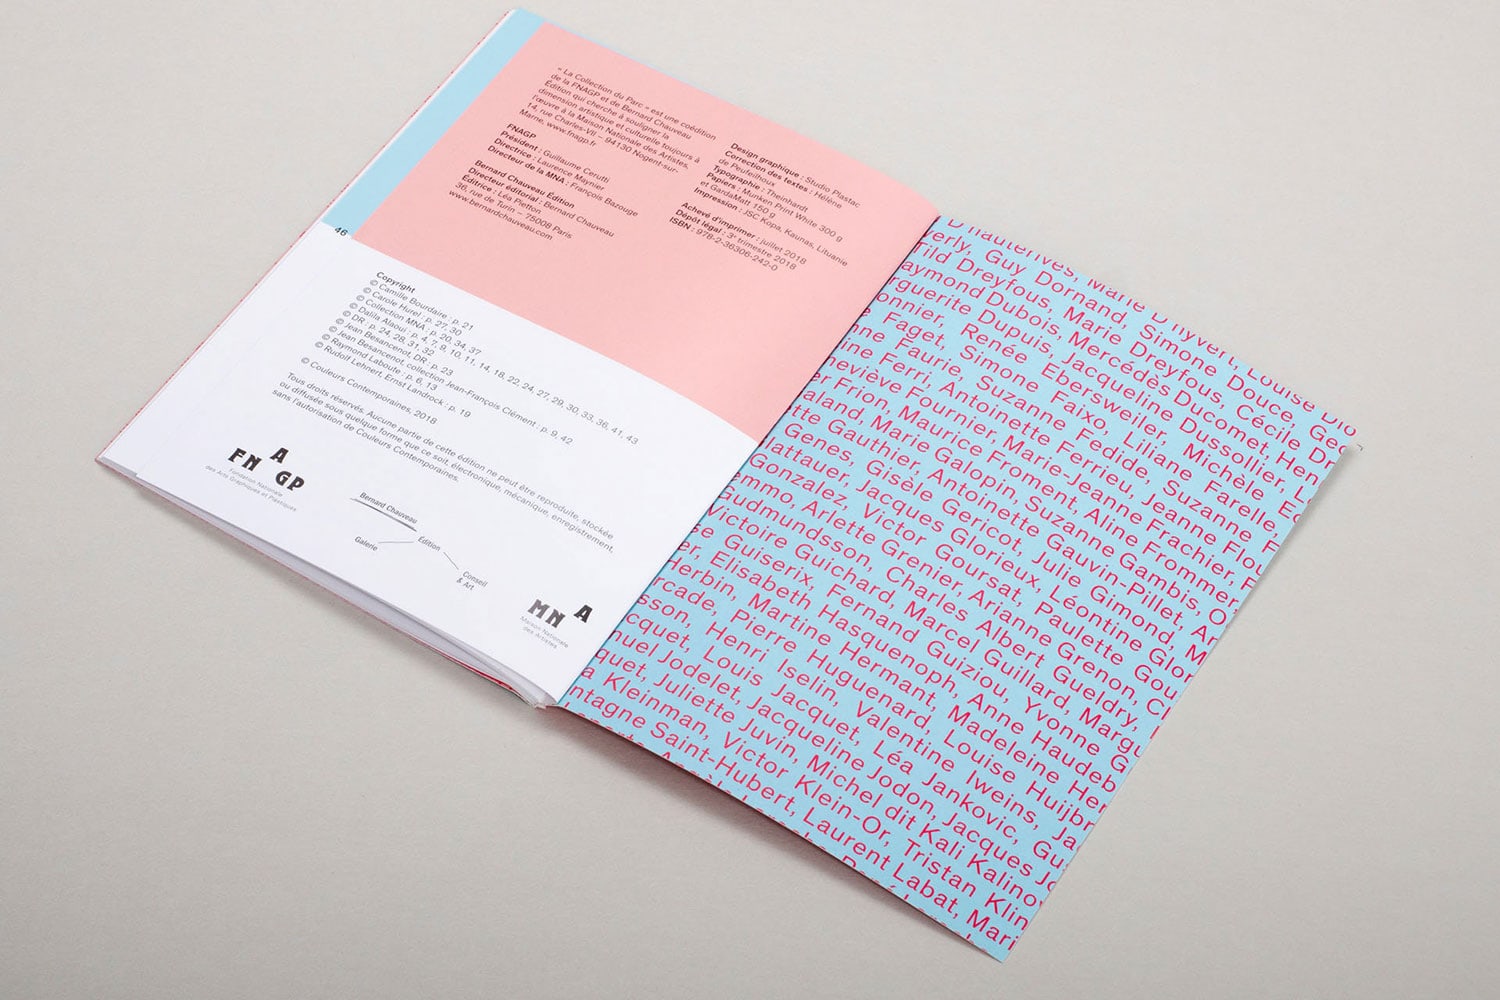 « La Collection du Parc » est une coédition
de la FNAGP et de Bernard Chauveau
Édition qui cherche à souligner la
dimension artistique et culturelle toujours à
l'œuvre à la Maison Nationale des Artistes,
14, rue Charles-VII – 94130 Nogent-sur-
Marne, www.fnagp.fr
FNAGP
Président : Guillaume Cerutti
Directrice : Laurence Maynier
Directeur de la MNA : François Bazouge
Bernard Chauveau Édition
Directeur éditorial : Bernard Chauveau
Éditrice : Léa Pietton
36, rue de Turin – 75008 Paris
www.bernardchauveau.com
Design graphique : Studio Plastac
Correction des textes : Hélène
de Peufeilhoux
Typographie : Theinhardt
Papiers : Munken Print White 300 g
et GardaMatt 150 g
Impression : JSC Kopa, Kaunas, Lituanie
Achevé d'imprimer : juillet 2018
Dépôt légal : 3e trimestre 2018
ISBN : 978-2-36306-242-0
46
Copyright
© Camille Bourdaire : p. 21
© Carole Hurel : p. 27, 30
© Collection MNA : p. 20, 34, 37
© Dalila Alaoui : p. 4, 7, 9, 10, 11, 14, 18, 22, 24, 27, 29, 30, 33, 36, 41, 43
© DR : p. 24, 28, 31, 32
© Jean Besancenot, DR : p. 23
© Jean Besancenot, collection Jean-François Clément : p. 9, 42
© Raymond Laboute : p. 6, 13
© Rudolf Lehnert, Ernst Landrock : p. 19
© Couleurs Contemporaines, 2018
Tous droits réservés. Aucune partie de cette édition ne peut être reproduite, stockée
ou diffusée sous quelque forme que ce soit, électronique, mécanique, enregistrement,
sans l'autorisation de Couleurs Contemporaines.
FNAGP
Fondation Nationale
des Arts Graphiques et Plastiques
Bernard Chauveau
Galerie
Édition
Conseil
& Art
MNA
Maison Nationale
des Artistes
D'hauterives, Marie D'hyver
Guy Dornand, Simone Douce
Dreyfous, Marie Dreyfous, Cécile
Dubois, Mercédès Ducomet, Hen
Dupuis, Jacqueline Dussollier,
Renée Ebersweiler, Michèle
Faget, Simone Faixo, Liliane Farelle,
Faurie, Suzanne Fedide, Suzanne F
Ferri, Antoinette Ferrieu, Jeanne Flou
Fournier, Marie-Jeanne Frachier, F
Frion, Maurice Froment, Aline Frommer,
Marie Galopin, Suzanne Gambis, O
Gauthier, Antoinette Gauvin-Pillet, Ar
Genes, Gisèle Gericot, Julie Gimond, M
lattauer, Jacques Glorieux, Léontine Glor
Gonzalez, Victor Goursat, Paulette Gou
emmo, Arlette Grenier, Arianne Grenon, C
Gudmundsson, Charles Albert Gueldry,
Victoire Guichard, Marcel Guillard, Margu
se Guiserix, Fernand Guiziou, Yvonne G
er, Elisabeth Hasquenoph, Anne Haudeb
Herbin, Martine Hermant, Madeleine Her
rcade, Pierre Huguenard, Louise Huijbr
sson, Henri Iselin, Valentine Iweins, Ja
cquet, Louis Jacquet, Léa Jankovic, Gu
nuel Jodelet, Jacqueline Jodon, Jacques Jo
quet, Juliette Juvin, Michel dit Kali Kalinov
a Kleinman, Victor Klein-Or, Tristan Klin
ntagne Saint-Hubert, Laurent Labat, Mari